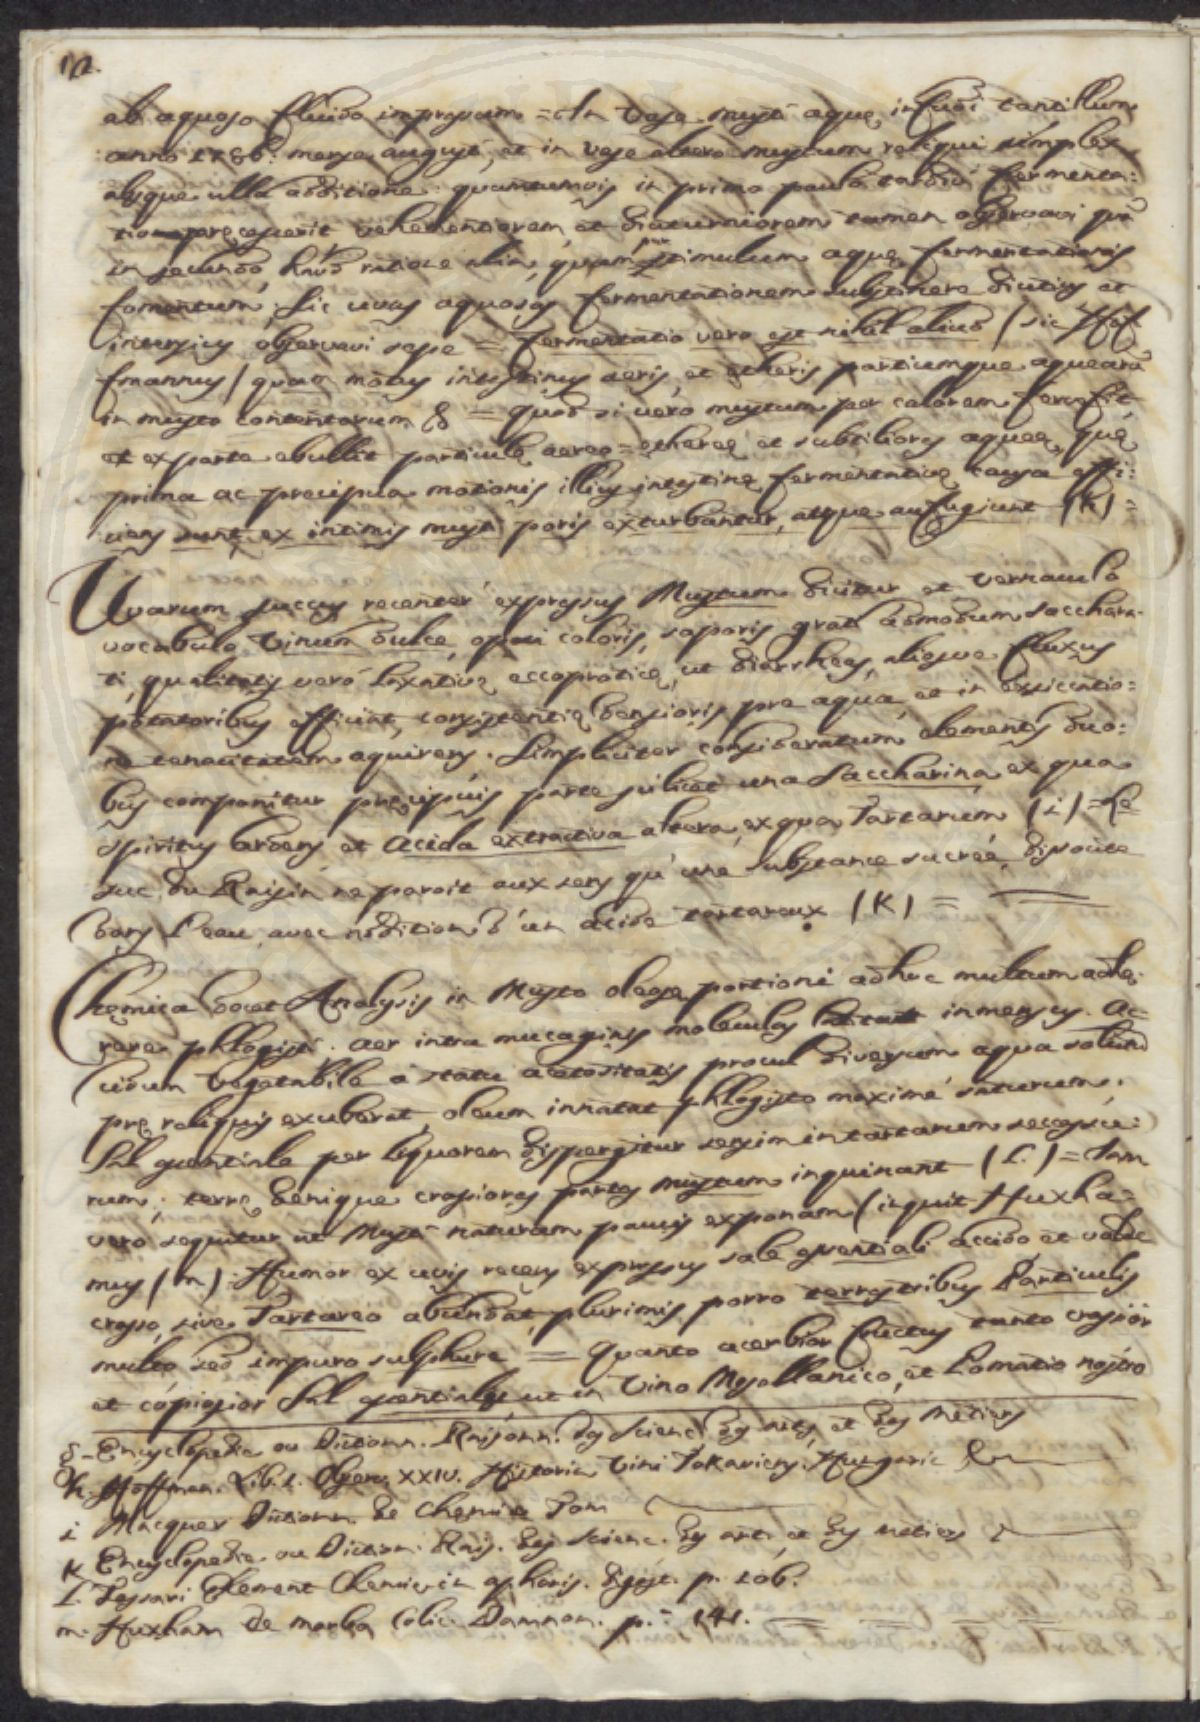 ab aquoso fluido impregnatum = In Vase musti aquę infudi tantillum
anno 1786: mense augusti, et in vase altero mustum reliqui simplex
absque ulla additione: quantumvis in primo paulo tardius fermenta:
tio vehementiorem, et diuturniorem tamen observavi
in secundo, haud ratione alia, quam stimulum aquę fermentationis
fomentum. Sic uvas aquosas fermentationem substinere diutius et
intensius observavi sepe = fermentatio vero est nihil aliud (sic Hof
fmannus) quam motus intestinus aeris, et etheris partiumque aquearum
in musto contentorum g = quod si vero mustum per calorem
et ex parte ebullit particulę aereo = ethereę et subtiliores aqueę, quę
prima ac precipua motionis illius intestinę fermentativę causa effi:
ciens sunt, ex intimis musti poris exturbantur, atque aufugiunt (h) =
Uvarum succus recenter expressus Mustum dicitur et vernaculo
vocabulo Vinum dulce, coloris, saporis grati admodum sacchara-
ti, qualitatis vero laxativę eccoproticę, ut diarrheas, aliosve fluxus
potatoribus efficiat, consistentię densioris prę aqua, et in exsiccatio:
ne tenacitatem aquirens. Simpliciter consideratum elementis duo:
bus componitur precipuis parte scilicet una Saccharina, ex qua
spiritus ardens et acida extractiva altera, ex qua Tartarum (i) = Le
suc du Raisin ne paroit aux sens qu'une substance sucrée, dissoute
dans l'eau avec addition d'un acide tartareux (K) =
Chemica docet Analysis in Musto oleosę portioni adhuc multum adhę-
rere phlogisti. aer intra mucaginis moleculas inmersus. Ac-
cidum vegetabile a statu acetositatis procul diversum aqua solutum
prę reliquis exuberat, oleum innatat phlogisto maxime saturum.
Sal essentiale per liquorem dispergitur sensim in tartarum secessu:
rum; terrę denique crassiores partes mustum inquinant (L.) = Jam
vero sequitur ut Musti naturam paucis exponam (inquit Huxha=
mus (m). Humor ex uvis recens expressus sale essentiali accido et valde
crasso, sive Tartareo abundat, plurimis porro terrestribus Particulis
multo sed impuro sulphure = quanto acerbior fructus tanto crassior
et copiosior Sal essentialis, ut in Vino Mosellanico, et Lomatio nostro
g - Encyclopedie ou Dictionn. Raisonn. des Scienc. des arts, et des Metiers
h. Hoffman. Lib. 1. Observ. XXIV. Historia Vini Tokaviens. Hungarie &
i Macquer Dictionn. de Chemie Tom
K Encyclopedie. ou Diction. Rais. des Scienc. des arts. et des Metiers
L. Tessari Element Chemie in p. 106.
m. Huxham de morbo Colic. Damnon. p.: 141.